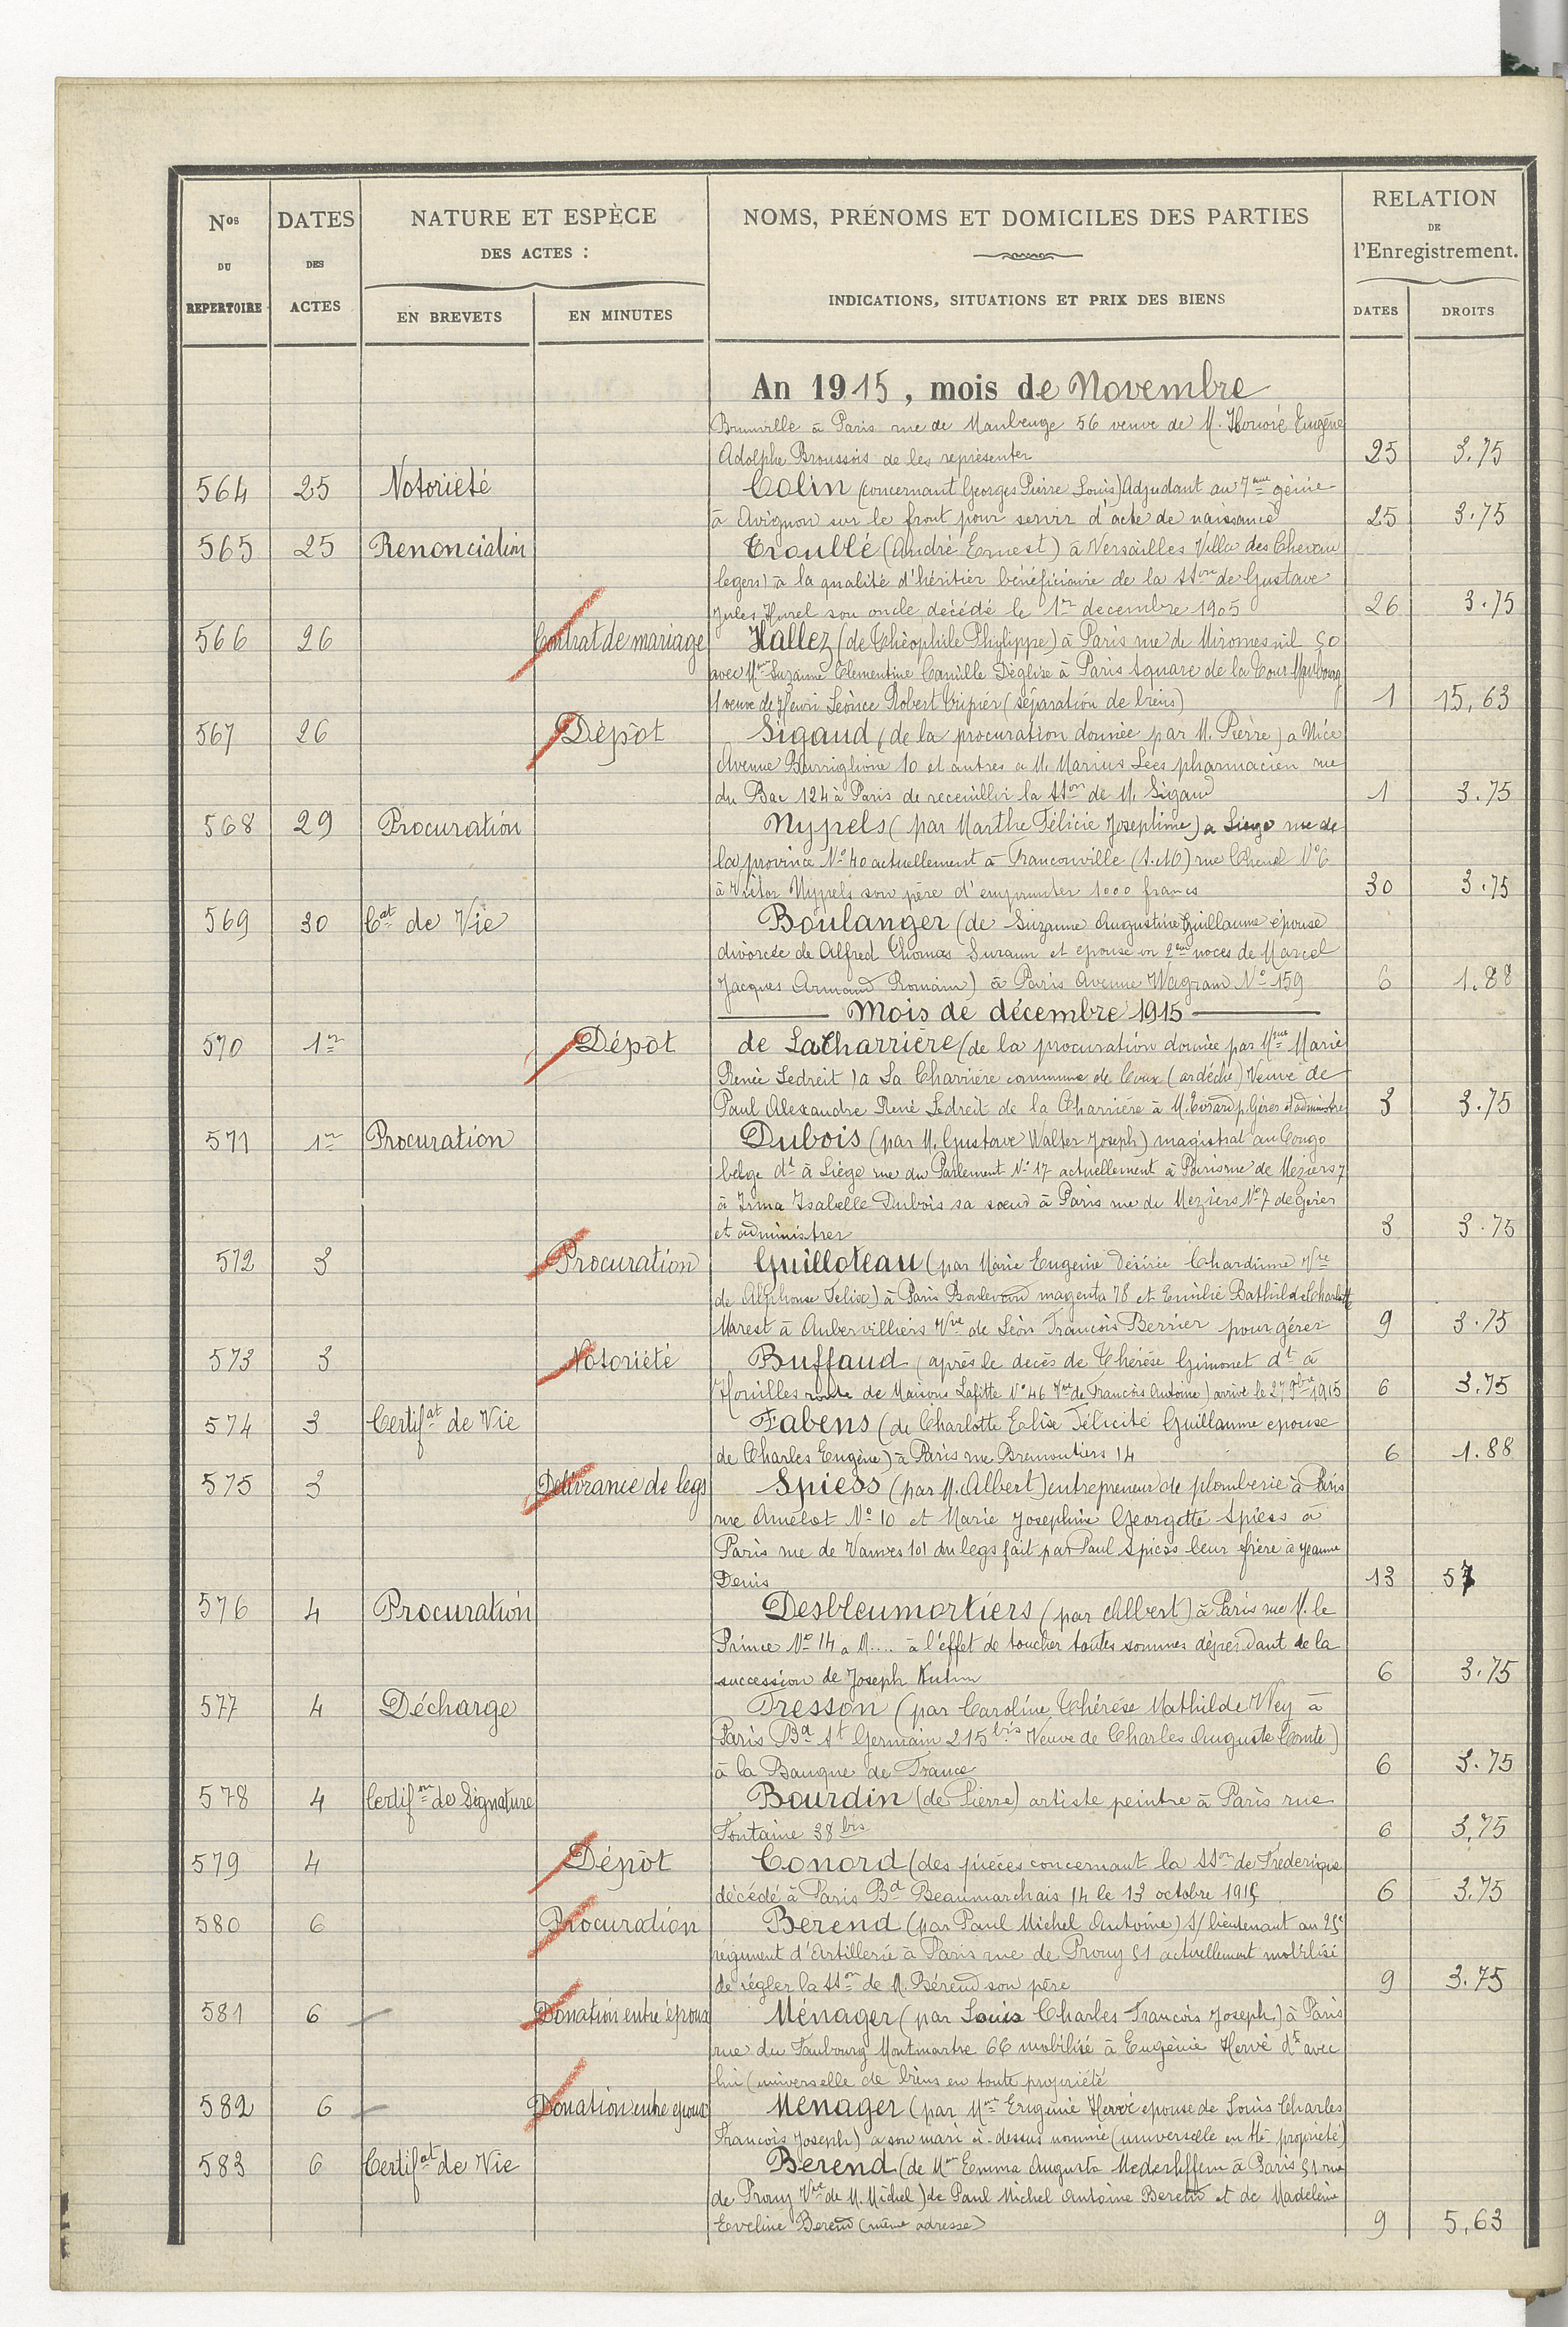 Nos DU REPERTOIRE
DATES DES ACTES
NATURE ET ESPÈCE DES ACTES :
EN BREVETS
EN MINUTES
NOMS, PRÉNOMS ET DOMICILES DES PARTIES
INDICATIONS, SITUATIONS ET PRIX DES BIENS
RELATION DE l'Enregistrement.
DATES
DROITS
An 1915, mois de Novembre
à Paris rue de Maubeuge 56 veuve de M. Honoré Eugène
Adolphe Broussois de les représenter 25 3.75
564 25 Notoriété Colin (concernant Georges Pierre Louis) Adjudant au 7eme génie
à Avignon sur le front pour servir d'acte de naissance 25 3.75
565 25 Renonciation Troublé (André Ernest) à Versailles Villa des Chevau
legers) à la qualité d'héritier bénéficiaire de la sson de Gustave
Jules Hurel son oncle décédé le 1er decembre 1905 26 3.75
566 26 Contrat de mariage Hallez (de Théophile Philippe) à Paris rue de Miromesnil 50
avec Mme Suzanne Clementine Camille Déglise à Paris square de la Tour Maubourg
1 veuve de Henri Léonce Robert Tripier (séparation de biens) 1 15,63
567 26 Dépôt Sigaud (de la procuration donnée par M. Pierre) a Nice
Avenue Burriglione 10 et autres a M. Marius Lees pharmacien rue
du Bac 124 à Paris de receuillir la sson de M. Sigaud 1 3.75
568 29 Procuration Nypels (par Marthe Félicie Josephine) a Liège rue de
la province No 40 actuellement à Franconville (S.et O) rue No 6
à Victor Nypels son père d'emprunter 1000 francs 30 3.75
569 30 Cat de Vie Boulanger (de Suzanne Augustine Guillaume épouse
divorcée de Alfred Thomas et epouse en 2eme noces de Marcel
Jacques Armand Romain) à Paris Avenue Wagram No 159 6 1.88
Mois de décembre 1915
570 1er Dépôt de LaCharrière (de la procuration donnée par Mme Marie
Renée Ledreit) a La Charrière commune de Coux (ardéche) Veuve de
Paul Alexandre René Ledreit de la Charrière à M. Evrard p. Gérer et administrer 3 3.75
571 1er Procuration Dubois (par M. Gustave Walter Joseph) magistrat au Congo
belge dt à Liége rue du Parlement No 17 actuellement à Paris rue de Meziers 7
à Irma Isabelle Dubois sa soeur à Paris rue de Meziers No 7 de gérer
et administrer 3 3.75
572 3 Procuration Guilloteau (par Marie Eugenie Désirée Chardinne Vve
de Alphonse Felix) à Paris Boulevard magenta 78 et Emilie Bathilde Charlotte
Marest à Aubervilliers Vve de Léon François Berrier pour gérer 9 3.75
573 3 Notoriété Buffaud (après le decès de Thérèse Gimonet dt à
Houilles route de Maisons Lafitte No 46 Vve de François Antoine) arrivé le 27 9bre 1915 6 3.75
574 3 Certifat de Vie Fabens (de Charlotte Elise Félicité Guillaume epouse
de Charles Eugène) à Paris rue Bremontiers 14 6 1.88
575 3 Délivrance de legs Spiess (par M. Albert) entrepreneur de plomberie à Paris
rue Amelot No 10 et Marie Josephine Georgette Spiess à
Paris rue de Vanves 101 du legs fait par Paul Spiess leur frère à Jeanne
Denis 13 57
576 4 Procuration Desbleumortiers (par Albert) à Paris rue M. le
Prince No 14 a M.... à l'effet de toucher toutes sommes dépendant de la
succession de Joseph Kuhn 6 3.75
577 4 Décharge Tresson (par Caroline Thérèse Mathilde Wey à
Paris Bd St Germain 215 bis Veuve de Charles Auguste Comte)
à la Banque de France 6 3.75
578 4 Certifon de Signature Bourdin (de Pierre) artiste peintre à Paris rue
Fontaine 38 bis 6 3,75
579 4 Dépôt Conord (des pièces concernant la sson de Fréderique
décédé à Paris Bd Beaumarchais 14 le 13 octobre 1915 6 3.75
580 6 Procuration Berend (par Paul Michel Antoine) S/lieutenant au 25e
régiment d'Artillerie à Paris rue de Prony 51 actuellement mobilisé
de régler la sson de M. Bérend son père 9 3.75
581 6 Donation entre époux Ménager (par Louis Charles François Joseph) à Paris
rue du Faubourg Montmartre 66 mobilisé à Eugénie Hervé dt avec
lui (universelle de biens en toute propriété
582 6 Donation entre epoux Menager (par Mme Eugénie Hervé epouse de Louis Charles
François Joseph) a son mari ci-dessus nommé (universelle en tte propriété)
583 6 Certifat de Vie Berend (de Mme Emma Augusta à Paris 51 rue
de Prony Vve de M. Michel) de Paul Michel Antoine Berend et de Madeleine
Eveline Berend (même adresse) 9 5,63